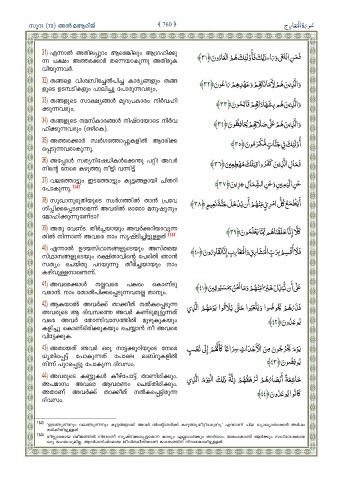 സൂറ: (70) അൽ മആരിജ്
﴾ 760 ﴿
سُورَةُ الْمَعَارِجِ
31) എന്നാൽ അതിലപ്പുറം ആരെങ്കിലും ആഗ്രഹിക്കു
ന്ന പക്ഷം അത്തരക്കാർ തന്നെയാകുന്നു അതിരുക
വിയുന്നവർ.
فَمَنِ ابْتَغَىٰ وَرَاءَ ذَٰلِكَ فَأُولَٰئِكَ هُمُ الْعَادُونَ ﴿٣١﴾
32) തങ്ങളെ വിശ്വസിച്ചേൽപിച്ച കാര്യങ്ങളും തങ്ങ
ളുടെ ഉടമ്പടികളും പാലിച്ചു പോരുന്നവരും,
وَالَّذِينَ هُمْ لِأَمَانَاتِهِمْ وَعَهْدِهِمْ رَاعُونَ ﴿٣٢﴾
33) തങ്ങളുടെ സാക്ഷ്യങ്ങൾ മുറപ്രകാരം നിർവഹി
ക്കുന്നവരും,
وَالَّذِينَ هُمْ بِشَهَادَاتِهِمْ قَائِمُونَ ﴿٣٣﴾
34) തങ്ങളുടെ നമസ്കാരങ്ങൾ നിഷ്ഠയോടെ നിർവ
ഹിക്കുന്നവരും (ഒഴികെ).
وَالَّذِينَ هُمْ عَلَىٰ صَلَاتِهِمْ يُحَافِظُونَ ﴿٣٤﴾
35) അത്തരക്കാർ സ്വർഗത്തോപ്പുകളിൽ ആദരിക്ക
പ്പെടുന്നവരാകുന്നു.
أُولَٰئِكَ فِي جَنَّاتٍ مُكْرَمُونَ ﴿٣٥﴾
36) അപ്പോൾ സത്യനിഷേധികൾക്കെന്തു പറ്റി! അവർ
നിന്റെ നേരെ കഴുത്തു നീട്ടി വന്നിട്ട്
فَمَالِ الَّذِينَ كَفَرُوا قِبَلَكَ مُهْطِعِينَ ﴿٣٦﴾
37) വലത്തോട്ടും ഇടത്തോട്ടും കൂട്ടങ്ങളായി ചിതറി
പ്പോകുന്നു.
عَنِ الْيَمِينِ وَعَنِ الشِّمَالِ عِزِينَ ﴿٣٧﴾
38) സുഖാനുഭൂതിയുടെ സ്വർഗത്തിൽ താൻ പ്രവേ
ശിപ്പിക്കപ്പെടണമെന്ന് അവരിൽ ഓരോ മനുഷ്യനും
മോഹിക്കുന്നുണ്ടോ?
أَيَطْمَعُ كُلُّ امْرِئٍ مِنْهُمْ أَنْ يُدْخَلَ جَنَّةَ نَعِيمٍ ﴿٣٨﴾
39) അതു വേണ്ട. തീർച്ചയായും അവർക്കറിയാവുന്ന
തിൽ നിന്നാണ് അവരെ നാം സൃഷ്ടിച്ചിട്ടുള്ളത്.
كَلَّا إِنَّا خَلَقْنَاهُمْ مِمَّا يَعْلَمُونَ ﴿٣٩﴾
40) എന്നാൽ ഉദയസ്ഥാനങ്ങളുടെയും അസ്തമയ
സ്ഥാനങ്ങളുടെയും രക്ഷിതാവിന്റെ പേരിൽ ഞാൻ
സത്യം ചെയ്തു പറയുന്നു: തീർച്ചയായും നാം
കഴിവുള്ളവനാണെന്ന്.
فَلَا أُقْسِمُ بِرَبِّ الْمَشَارِقِ وَالْمَغَارِبِ إِنَّا لَقَادِرُونَ ﴿٤٠﴾
41) അവരെക്കാൾ നല്ലവരെ പകരം കൊണ്ടു
വരാൻ. നാം തോൽപിക്കപ്പെടുന്നവനല്ല താനും.
عَلَىٰ أَنْ نُبَدِّلَ خَيْرًا مِنْهُمْ وَمَا نَحْنُ بِمَسْبُوقِينَ ﴿٤١﴾
42) ആകയാൽ അവർക്ക് താക്കീത് നൽകപ്പെടുന്ന
അവരുടെ ആ ദിവസത്തെ അവർ കണ്ടുമുട്ടുന്നത്
വരെ അവർ തോന്നിവാസത്തിൽ മുഴുകുകയും
കളിച്ചു കൊണ്ടിരിക്കുകയും ചെയ്യാൻ നീ അവരെ
വിട്ടേക്കുക.
فَذَرْهُمْ يَخُوضُوا وَيَلْعَبُوا حَتَّىٰ يُلَاقُوا يَوْمَهُمُ الَّذِي
يُوعَدُونَ ﴿٤٢﴾
43) അതായത് അവർ ഒരു നാട്ടക്കുറിയുടെ നേരെ
ധൃതിപ്പെട്ട് പോകുന്നത് പോലെ ഖബ്റുകളിൽ
നിന്ന് പുറപ്പെട്ടു പോകുന്ന ദിവസം.
يَوْمَ يَخْرُجُونَ مِنَ الْأَجْدَاثِ سِرَاعًا كَأَنَّهُمْ إِلَىٰ نُصُبٍ
يُوفِضُونَ ﴿٤٣﴾
44) അവരുടെ കണ്ണുകൾ കീഴ്പോട്ട് താണിരിക്കും.
അപമാനം അവരെ ആവരണം ചെയ്തിരിക്കും.
അതാണ് അവർക്ക് താക്കീത് നൽകപ്പെട്ടിരുന്ന
ദിവസം.
خَاشِعَةً أَبْصَارُهُمْ تَرْهَقُهُمْ ذِلَّةٌ ذَٰلِكَ الْيَوْمُ الَّذِي
كَانُوا يُوعَدُونَ ﴿٤٤﴾